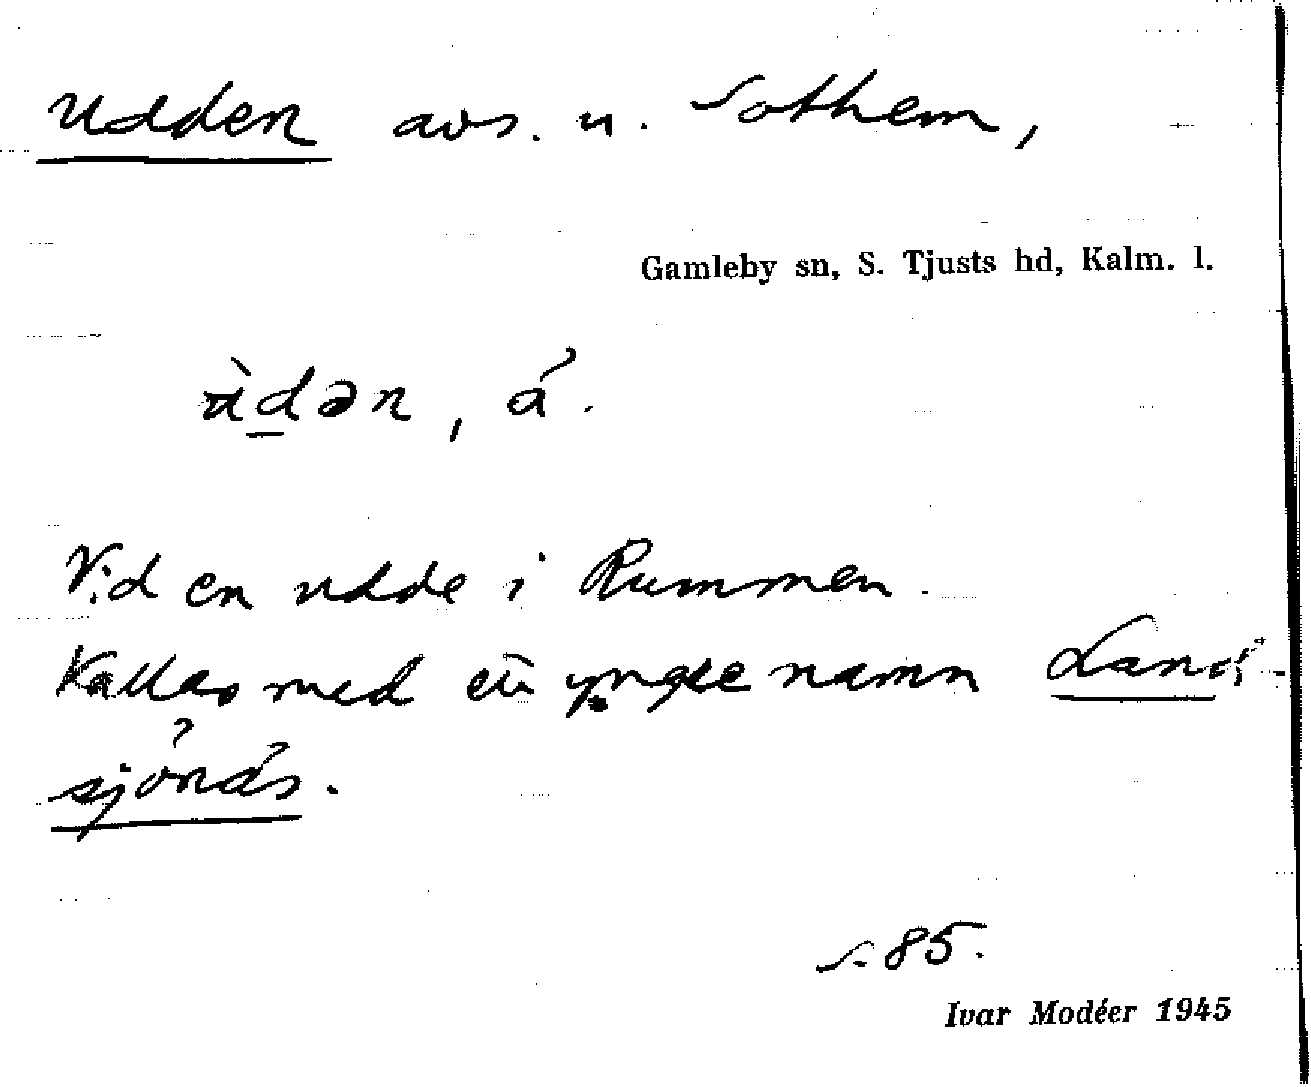 Udden avs. u. Sothem,
Gamleby sn, S. Tjusts hd, Kalm. l.
ùdən, å.
Vid en udde i Rummen.
Kallas med ett yngre namn Land-
sjönäs.
s. 85.
Ivar Modéer 1945